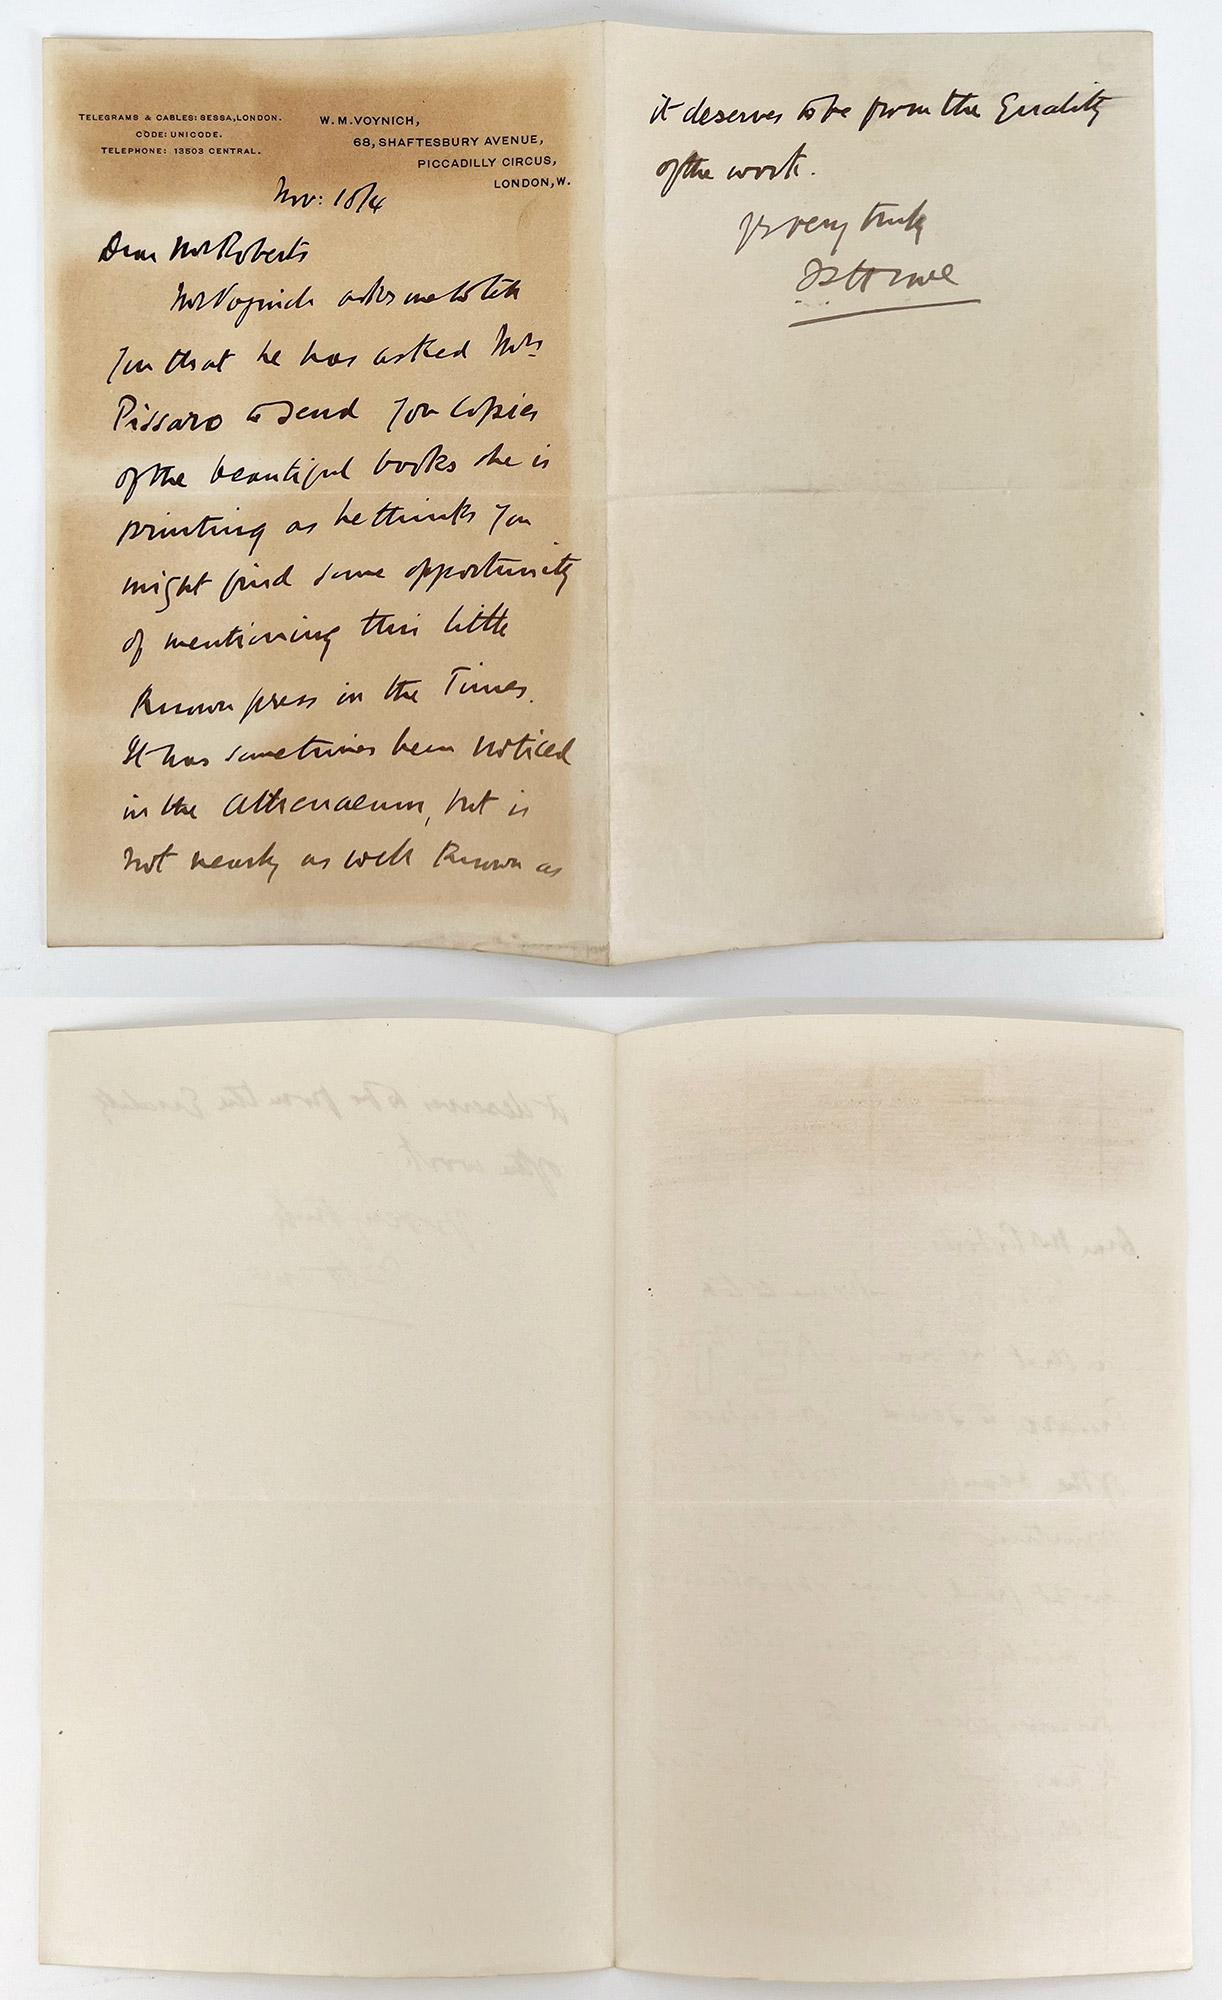 TELEGRAMS & CABLES: SESSA, LONDON.
CODE: UNICODE.
TELEPHONE: 13503 CENTRAL.
W. M. VOYNICH,
68, SHAFTESBURY AVENUE,
PICCADILLY CIRCUS,
LONDON, W.
Nov: 18/4
Dear Mr Roberts
Mr Voynich asks me to tell
you that he has asked Mrs
Pissaro to send you copies
of the beautiful books she is
printing as he thinks you
might find some opportunity
of mentioning this little
known press in the Times.
It has sometimes been noticed
in the Athenaeum, but is
not nearly as well known as
it deserves to be from the quality
of the work.
yrs very truly